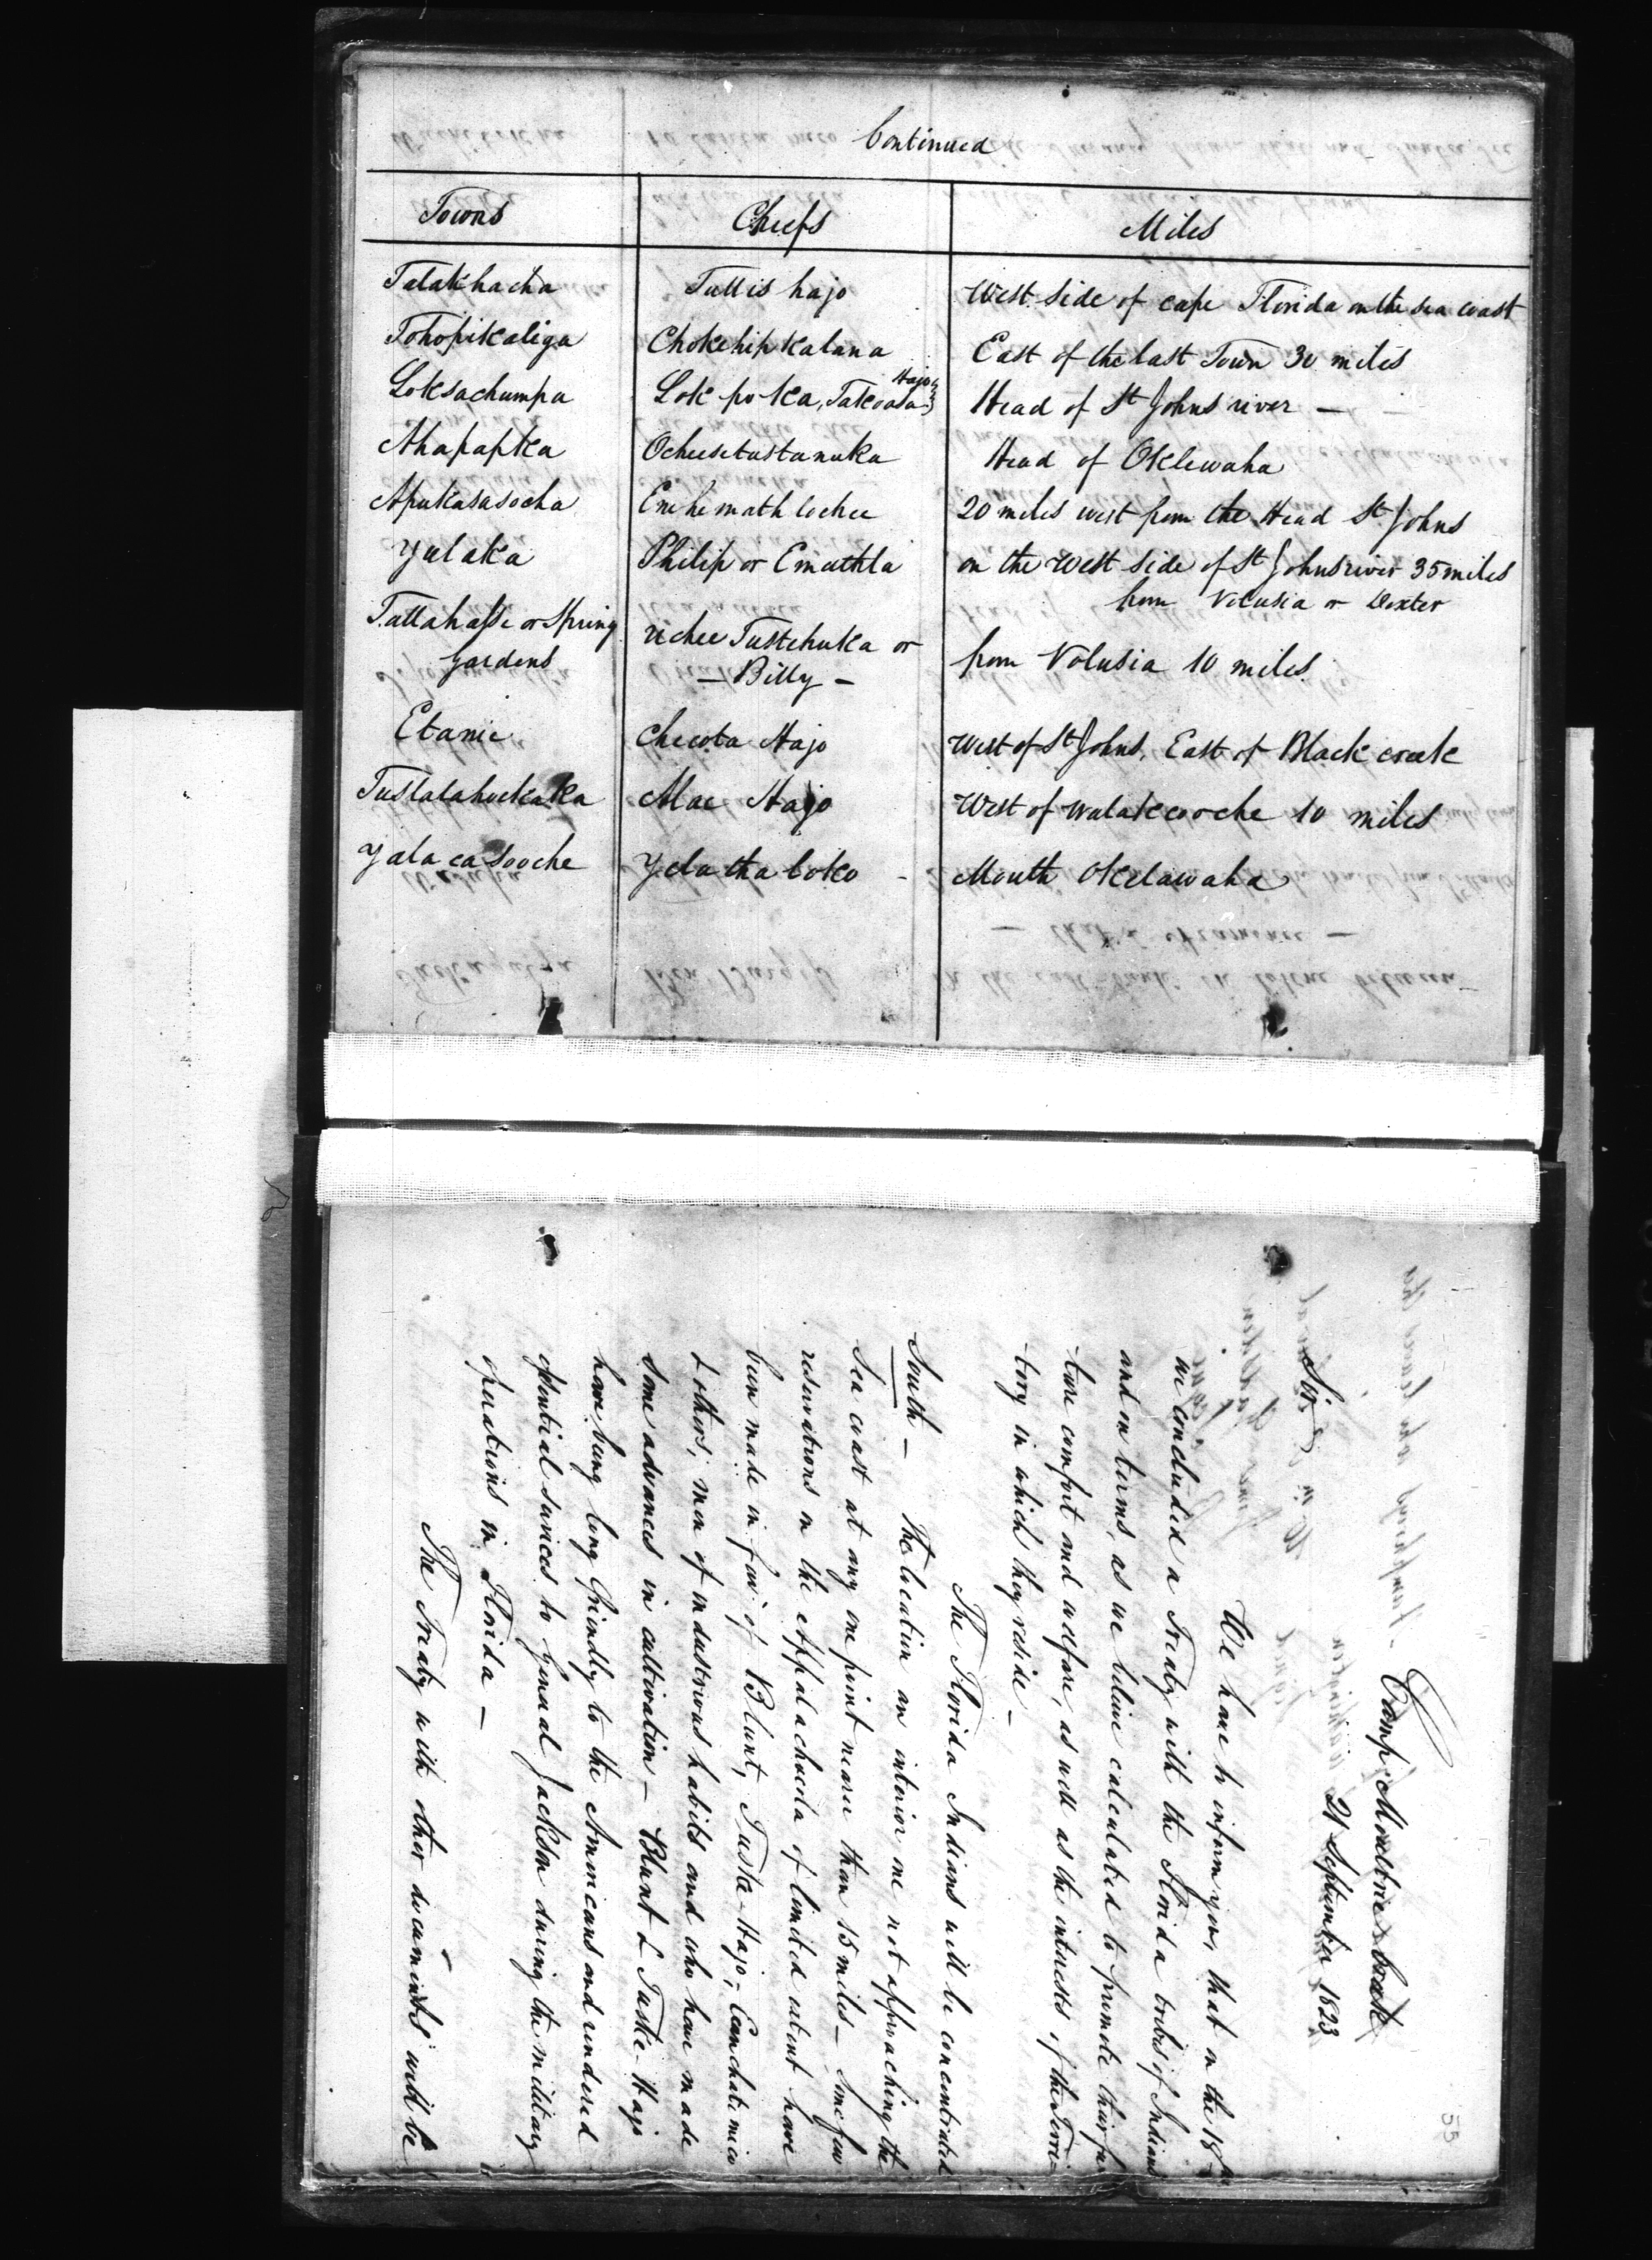 Continued
Towns Chiefs Miles
Talakhacha Tullis hajo West side of cape Florida on the sea coast
Tohopikaliga Chokehip kalana East of the last Town 30 miles
Loksachumpa Lok po ka, Takoasa Hajo Head of St Johns river —
Ahapapka Ocheesetustanuka Head of Oklewaha
Apukasasocha Enehemathlochee 20 miles west from the Head St Johns
Yulaka Philip or Emathla on the West side of St Johns river 35 miles
from Volusia or Dexter
Tallahasse or Spring Uchee Tustehuka or from Volusia 10 miles
Gardens — Billy —
Etanie Checota Hajo West of St Johns, East of Black creek
Tuslalahockaka Alac Hajo West of Walalecooche 10 miles
Yalacasooche Yelathaloko - Mouth Okelawaha
55
Camp Moultrie Creek
21 September 1823
Sir
We have to inform you, that on the 18th
we concluded a Treaty with the Florida tribes of Indians
and on terms, as we believe calculated to promote their fu
-ture comfort and welfare, as well as the interests of the Terri-
-tory in which they reside —
The Florida Indians will be concentrated
South — The location an interior one not approaching the
Sea coast at any one point nearer than 15 miles — Some few
reservations on the Appalachacola of limited extent have
been made in fav: of Blunt, Tuske-Hajo; Econchatimico
& others; men of industrious habits and who have made
some advances in cultivation — Blunt & Tuske-Hajo
have being long friendly to the Americans and rendered
essential services to General Jackson during the military
operations in Florida —
The Treaty with other documents will be